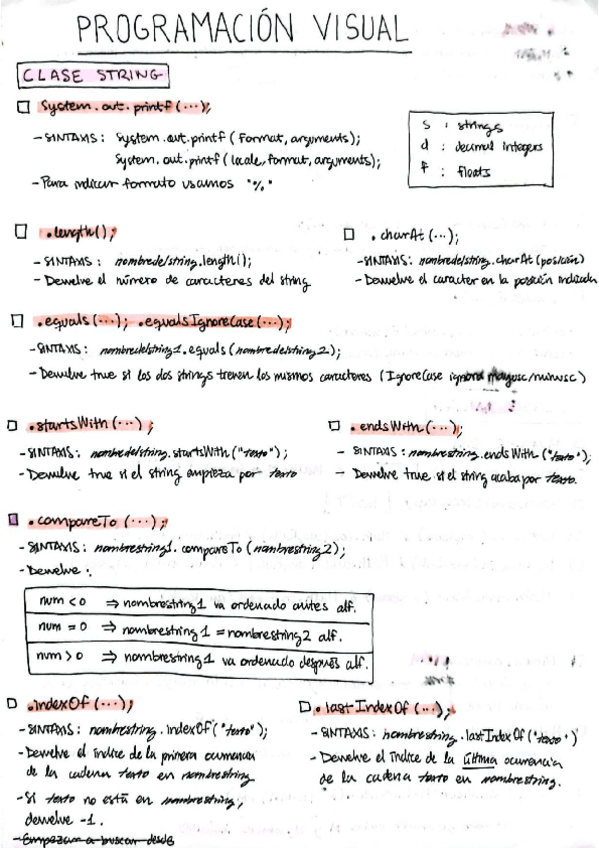 PROGRAMACIÓN VISUAL
CLASE STRING
System.out.printf(...);
- SINTAXIS: System.out.printf (format, arguments);
System.out.printf (locale, format, arguments);
- Para indicar formato usamos "%"
s : strings
d : decimal integers
f : floats
.length();
- SINTAXIS: nombredelstring.length();
- Devuelve el número de caracteres del string
.charAt(...);
- SINTAXIS: nombredelstring.charAt(posición)
- Devuelve el caracter en la posición indicada
.equals(...); .equalsIgnoreCase(...);
- SINTAXIS: nombredelstring1.equals(nombredelstring2);
- Devuelve true si los dos strings tienen los mismos caracteres (IgnoreCase ignora mayusc/minusc)
.startsWith(...);
- SINTAXIS: nombredelstring.startsWith("texto");
- Devuelve true si el string empieza por texto
.endsWith(...);
- SINTAXIS: nombrestring.endsWith("texto");
- Devuelve true si el string acaba por texto.
.compareTo(...);
- SINTAXIS: nombrestring1.compareTo(nombrestring2);
- Devuelve:
num < 0 ⇒ nombrestring1 va ordenado antes alf.
num = 0 ⇒ nombrestring1 = nombrestring2 alf.
num > 0 ⇒ nombrestring1 va ordenado después alf.
.indexOf(...);
- SINTAXIS: nombrestring.indexOf("texto");
- Devuelve el índice de la primera ocurrencia
de la cadena texto en nombrestring
- Si texto no está en nombrestring,
devuelve -1.
- Empezam a buscar desde
.lastIndexOf(...);
- SINTAXIS: nombrestring.lastIndexOf("texto")
- Devuelve el índice de la última ocurrencia
de la cadena texto en nombrestring.